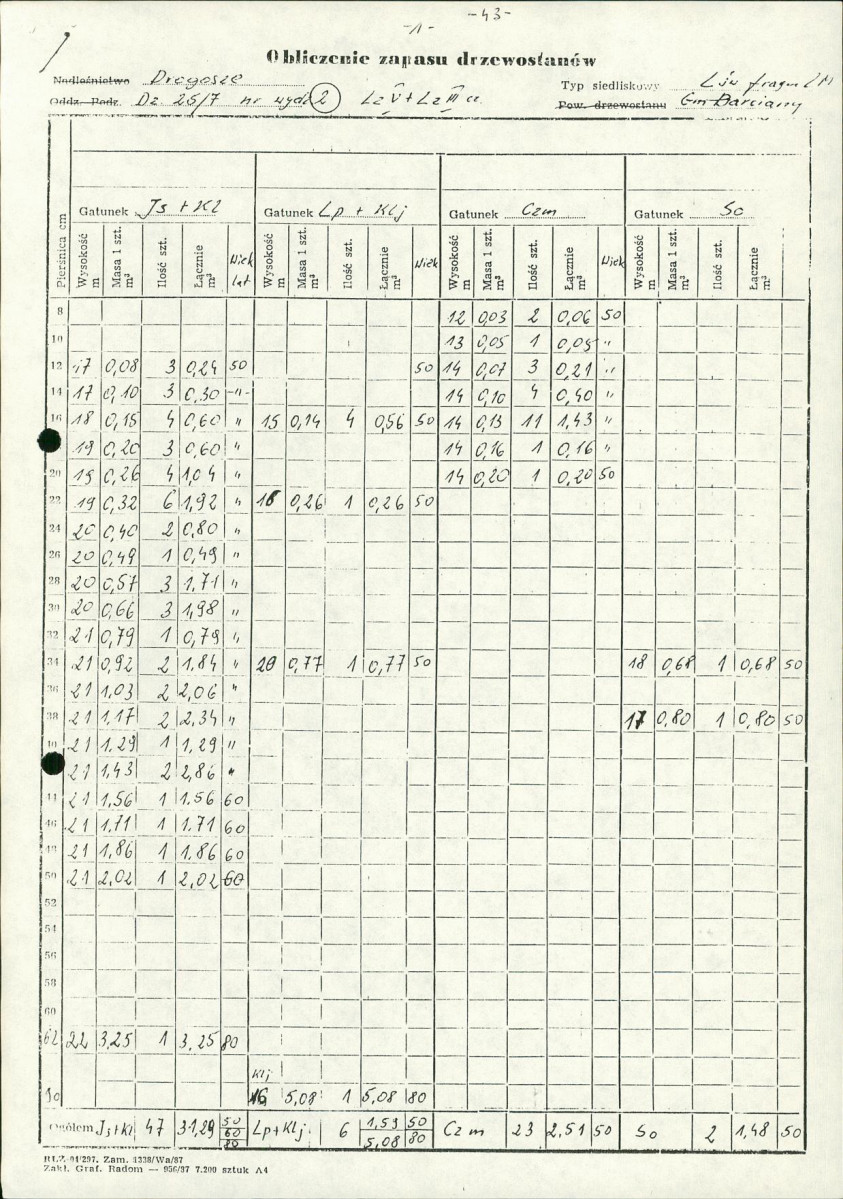 -1-
-43-
Obliczenie zapasu drzewostanów
Nadleśnictwo Drogosze
Typ siedliskowy Lśw fragm LM
Oddz. Podz. Dz. 25/7 nr wydz 2 Lz V + Lz III a
Pow. drzewostanu Gm Barciany
Pierśnica cm
Gatunek Js + Kl Gatunek Lp + Klj Gatunek Czm Gatunek So
Wysokość m Masa 1 szt. m³ Ilość szt. Łącznie m³ Wiek lat Wysokość m Masa 1 szt. m³ Ilość szt. Łącznie m³ Wiek Wysokość m Masa 1 szt. m³ Ilość szt. Łącznie m³ Wiek Wysokość m Masa 1 szt. m³ Ilość szt. Łącznie m³
8 12 0,03 2 0,06 50
10 13 0,05 1 0,05 "
12 17 0,08 3 0,24 50 50 14 0,07 3 0,21 "
14 17 0,10 3 0,30 -"- 14 0,10 4 0,40 "
16 18 0,15 4 0,60 " 15 0,14 4 0,56 50 14 0,13 11 1,43 "
19 0,20 3 0,60 " 14 0,16 1 0,16 "
20 19 0,26 4 1,04 " 14 0,20 1 0,20 50
22 19 0,32 6 1,92 " 16 0,26 1 0,26 50
24 20 0,40 2 0,80 "
26 20 0,49 1 0,49 "
28 20 0,57 3 1,71 "
30 20 0,66 3 1,98 "
32 21 0,79 1 0,79 "
34 21 0,92 2 1,84 " 20 0,77 1 0,77 50 18 0,68 1 0,68 50
36 21 1,03 2 2,06 "
38 21 1,17 2 2,34 " 17 0,80 1 0,80 50
40 21 1,29 1 1,29 "
21 1,43 2 2,86 "
44 21 1,56 1 1.56 60
46 21 1,71 1 1.71 60
48 21 1,86 1 1.86 60
50 21 2,02 1 2,02 60
52
54
56
58
60
62 22 3,25 1 3,25 80
Klj
16 5,08 1 5,08 80
Ogółem Js+Kl 47 31,29 50 60 80 Lp+Klj 6 1,59 50 5,08 80 Czm 23 2,51 50 So 2 1,48 50
RLZ-04/297. Zam. 1338/Wa/87
Zakł. Graf. Radom — 956/87 7.200 sztuk A4